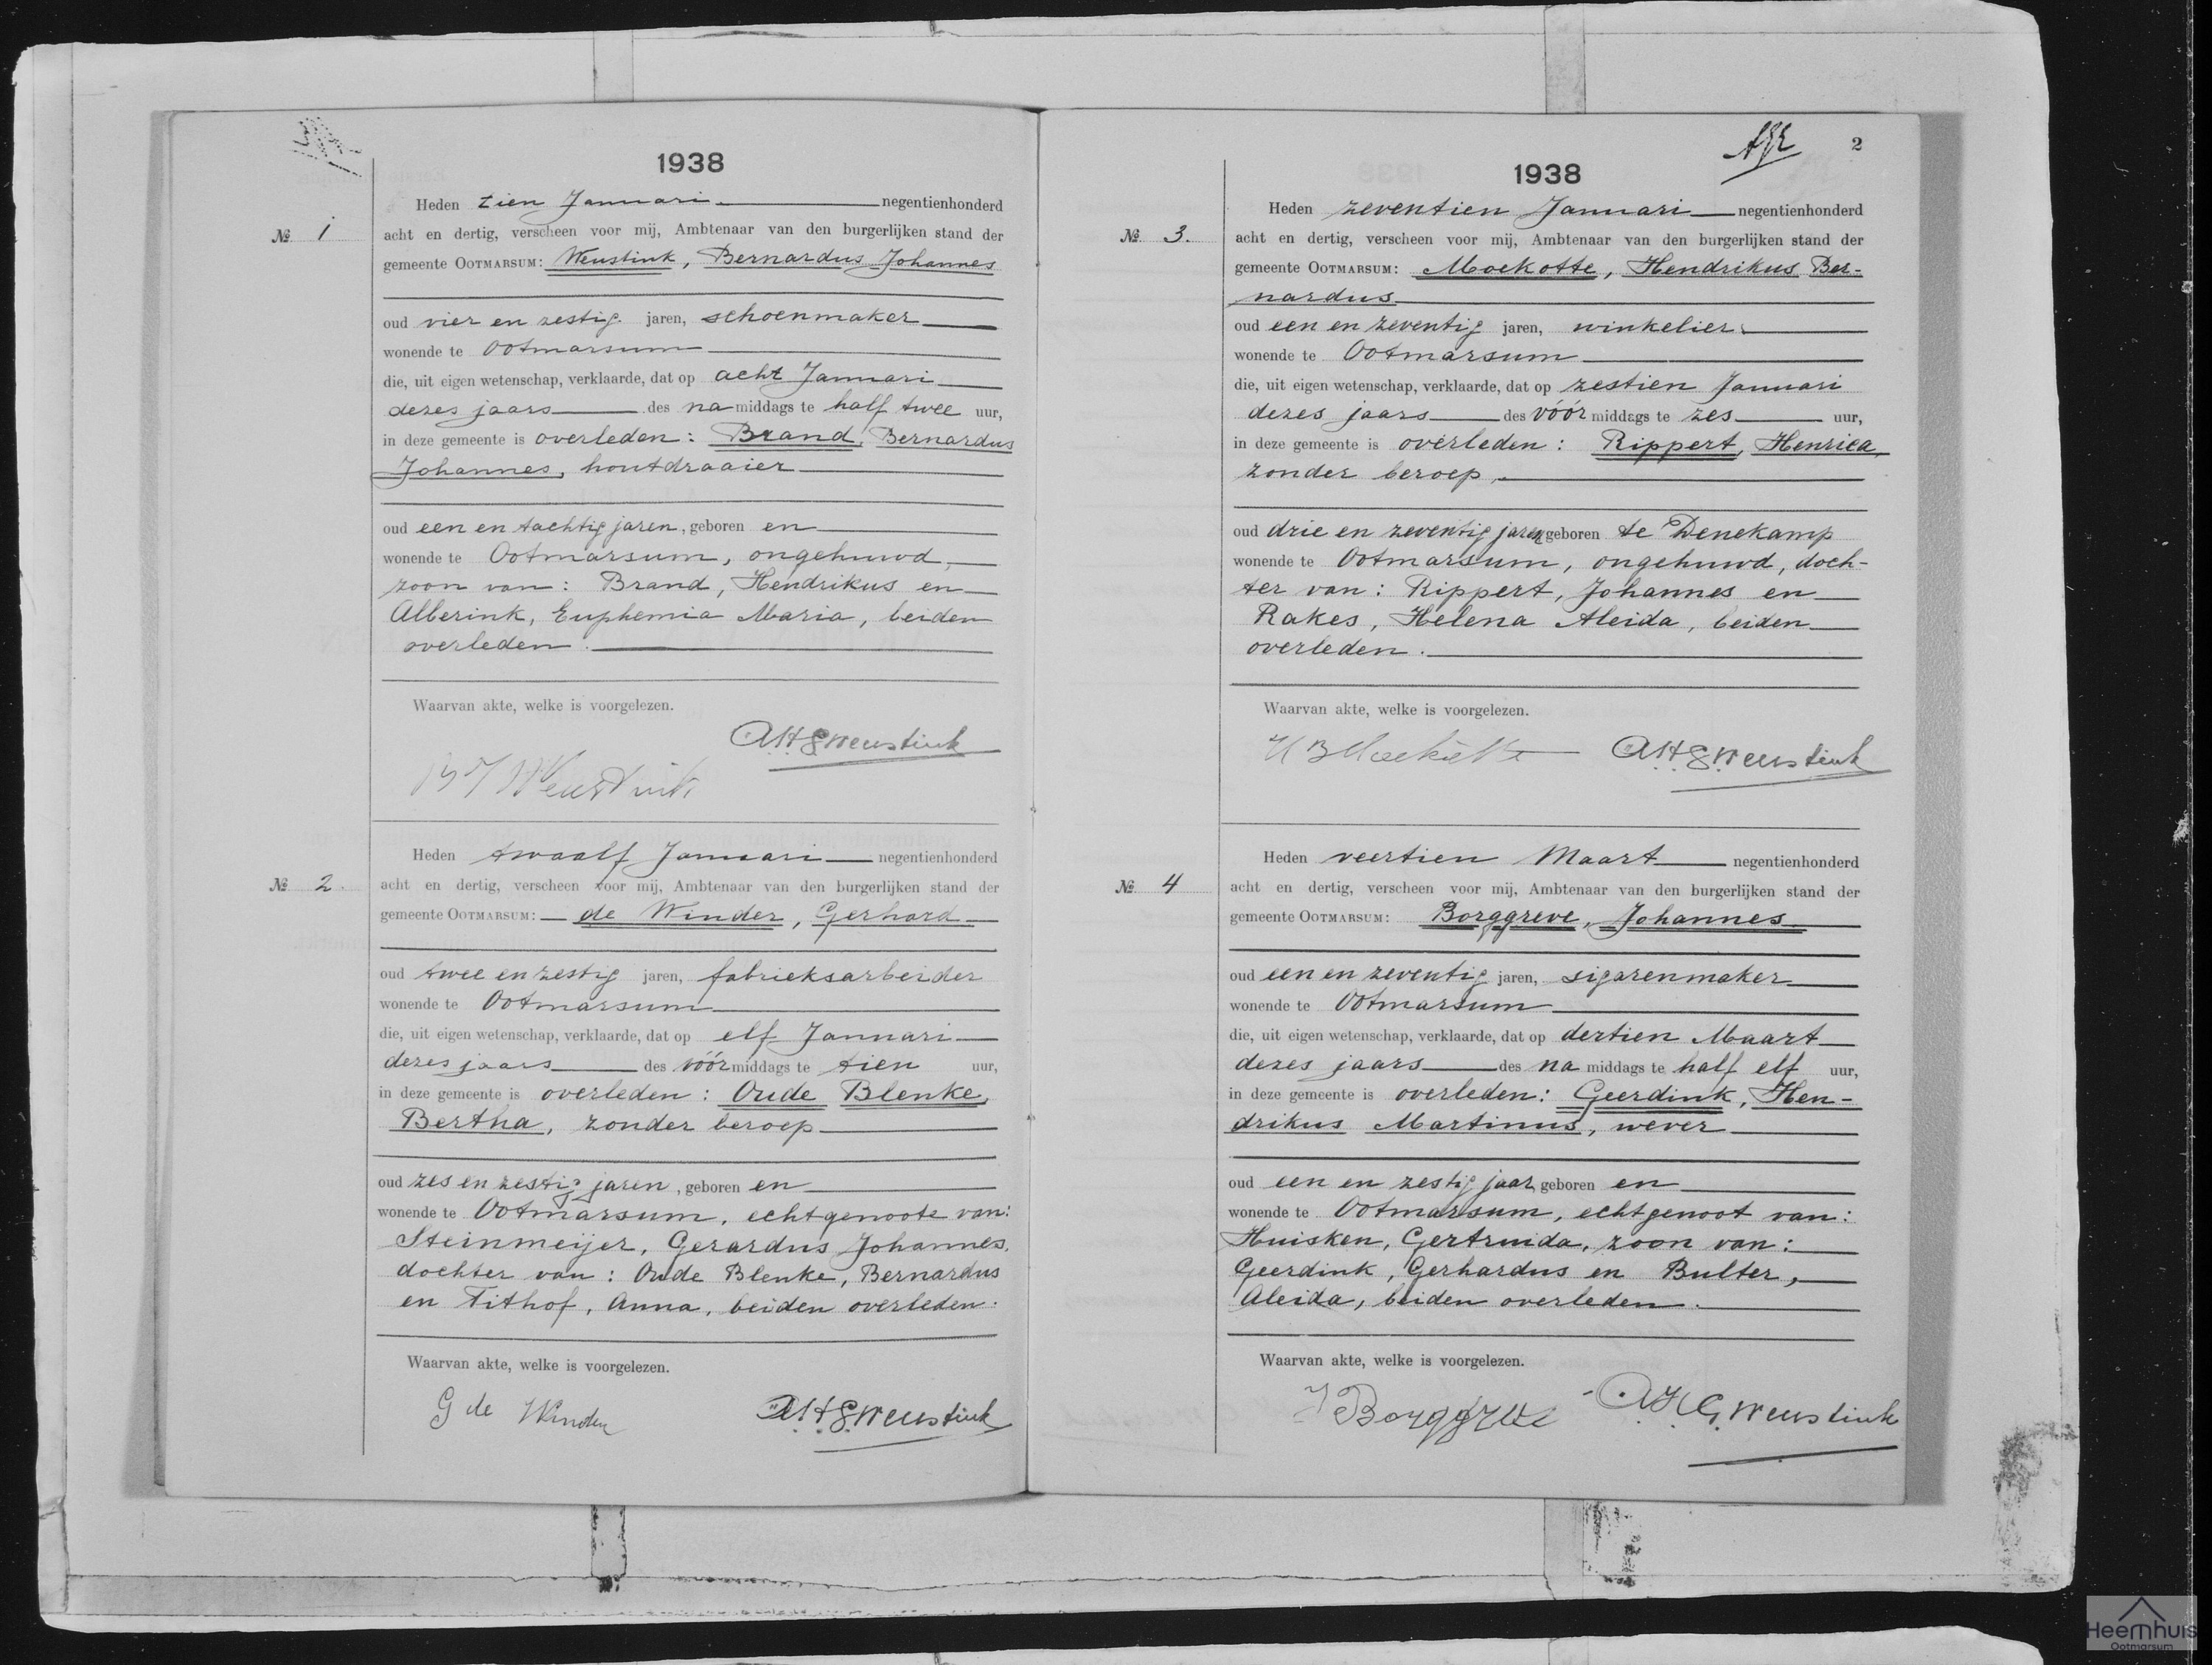 1938
Heden tien Januari negentienhonderd
№ 1 acht en dertig, verscheen voor mij, Ambtenaar van den burgerlijken stand der
gemeente OOTMARSUM: Weustink, Bernardus Johannes
oud vier en zestig jaren, schoenmaker
wonende te Ootmarsum
die, uit eigen wetenschap, verklaarde, dat op acht Januari
dezes jaars des na middags te half twee uur,
in deze gemeente is overleden: Brand, Bernardus
Johannes, houtdraaier
oud een en tachtig jaren, geboren en
wonende te Ootmarsum, ongehuwd,
zoon van: Brand, Hendrikus en
Alberink, Euphemia Maria, beiden
overleden.
Waarvan akte, welke is voorgelezen.
AHGWeustink
BJ Weustink
Heden twaalf Januari negentienhonderd
№ 2. acht en dertig, verscheen voor mij, Ambtenaar van den burgerlijken stand der
gemeente OOTMARSUM: de Winder, Gerhard
oud twee en zestig jaren, fabrieksarbeider
wonende te Ootmarsum
die, uit eigen wetenschap, verklaarde, dat op elf Januari
dezes jaars des vóór middags te tien uur,
in deze gemeente is overleden: Oude Blenke,
Bertha, zonder beroep
oud zes en zestig jaren, geboren en
wonende te Ootmarsum, echtgenoote van:
Steinmeijer, Gerardus Johannes,
dochter van: Oude Blenke, Bernardus
en Tithof, Anna, beiden overleden.
Waarvan akte, welke is voorgelezen.
G de Winder AHGWeustink
2
1938
Heden zeventien Januari negentienhonderd
№ 3. acht en dertig, verscheen voor mij, Ambtenaar van den burgerlijken stand der
gemeente OOTMARSUM: Moekotte, Hendrikus Ber-
nardus
oud een en zeventig jaren, winkelier
wonende te Ootmarsum
die, uit eigen wetenschap, verklaarde, dat op zestien Januari
dezes jaars des vóór middags te zes uur,
in deze gemeente is overleden: Rippert, Henrica,
zonder beroep,
oud drie en zeventig jaren geboren te Denekamp
wonende te Ootmarsum, ongehuwd, doch-
ter van: Rippert, Johannes en
Rakes, Helena Aleida, beiden
overleden.
Waarvan akte, welke is voorgelezen.
HBMoekotte AHGWeustink
Heden veertien Maart negentienhonderd
№ 4 acht en dertig, verscheen voor mij, Ambtenaar van den burgerlijken stand der
gemeente OOTMARSUM: Borggreve, Johannes
oud een en zeventig jaren, sigarenmaker
wonende te Ootmarsum
die, uit eigen wetenschap, verklaarde, dat op dertien Maart
dezes jaars des na middags te half elf uur,
in deze gemeente is overleden: Geerdink, Hen-
drikus Martinus, wever
oud een en zestig jaar, geboren en
wonende te Ootmarsum, echtgenoot van:
Huisken, Gertruida, zoon van:
Geerdink, Gerhardus en Bulter,
Aleida, beiden overleden.
Waarvan akte, welke is voorgelezen.
J Borggreve AHGWeustink
Heemhuis
Ootmarsum